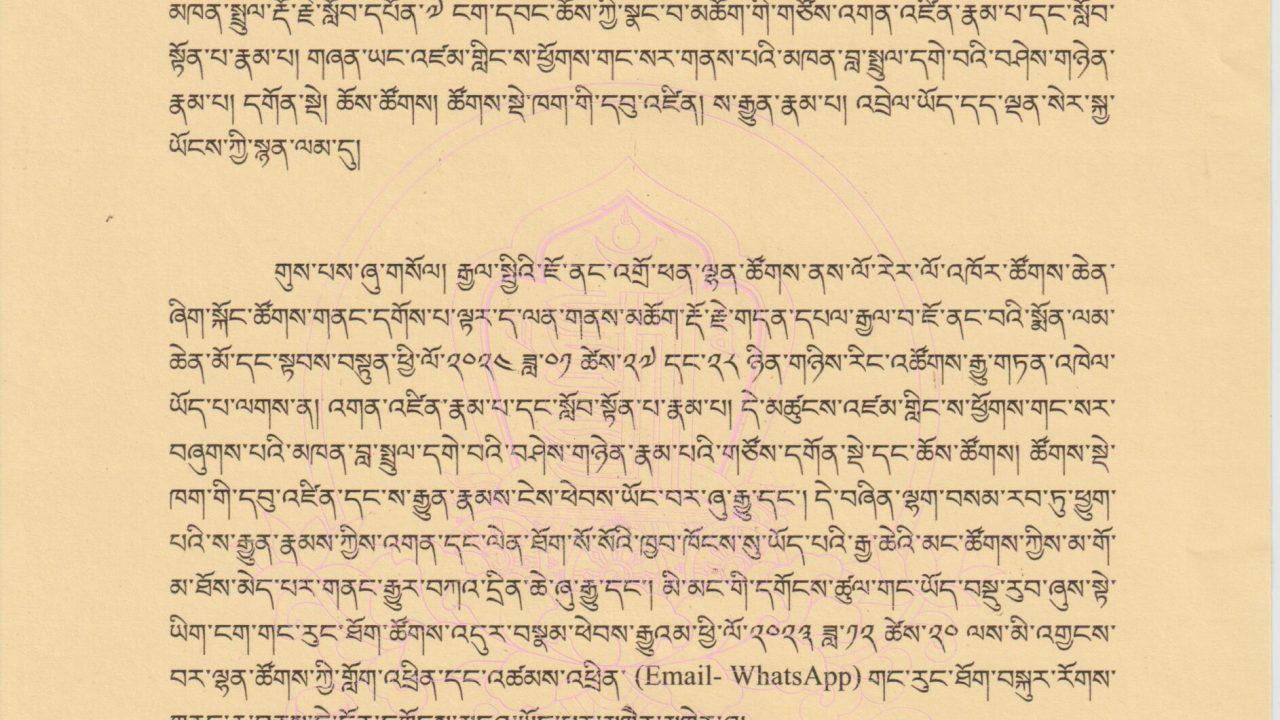 མཁན་སྤྲུལ་རྡོ་རྗེ་སློབ་དཔོན་༧ ངག་དབང་ཆོས་ཀྱི་སྣང་བ་མཆོག་གི་གཙོས་འགན་འཛིན་རྣམ་པ་དང་སློབ་
སྟོན་པ་རྣམ་པ། གཞན་ཡང་འཛམ་གླིང་ས་ཕྱོགས་གང་སར་གནས་པའི་མཁན་བླ་སྤྲུལ་དགེ་བའི་བཤེས་གཉེན་
རྣམ་པ། དགོན་སྡེ། ཆོས་ཚོགས། ཚོགས་སྡེ་ཁག་གི་དབུ་འཛིན། ས་རྒྱུན་རྣམ་པ། འབྲེལ་ཡོད་དད་ལྡན་སེར་སྐྱ་
ཡོངས་ཀྱི་སྙན་ལམ་དུ།
གུས་པས་ཞུ་གསོལ། རྒྱལ་སྤྱིའི་ཇོ་ནང་འགྲོ་ཕན་ལྷན་ཚོགས་ནས་ལོ་རེར་ལོ་འཁོར་ཚོགས་ཆེན་
ཞིག་སྐོང་ཚོགས་གནང་དགོས་པ་ལྟར་ད་ལན་གནས་མཆོག་རྡོ་རྗེ་གདན་དཔལ་རྒྱལ་བ་ཇོ་ནང་བའི་སྨོན་ལམ་
ཆེན་མོ་དང་སྟབས་བསྟུན་ཕྱི་ལོ་༢༠༢༤ ཟླ་༠༡ ཚེས་༢༧ དང་༢༨ ཉིན་གཉིས་རིང་འཚོགས་རྒྱུ་གཏན་འཁེལ་
ཡོད་པ་ལགས་ན། འགན་འཛིན་རྣམ་པ་དང་སློབ་སྟོན་པ་རྣམ་པ། དེ་མཚུངས་འཛམ་གླིང་ས་ཕྱོགས་གང་སར་
བཞུགས་པའི་མཁན་བླ་སྤྲུལ་དགེ་བའི་བཤེས་གཉེན་རྣམ་པའི་གཙོས་དགོན་སྡེ་དང་ཆོས་ཚོགས། ཚོགས་སྡེ་
ཁག་གི་དབུ་འཛིན་དང་ས་རྒྱུན་རྣམས་ངེས་ཕེབས་ཡོང་བར་ཞུ་རྒྱུ་དང་། དེ་བཞིན་ལྷག་བསམ་རབ་ཏུ་ཕྱུག་
པའི་ས་རྒྱུན་རྣམས་ཀྱིས་འགན་དང་ལེན་ཐོག་སོ་སོའི་ཁྱབ་ཁོངས་སུ་ཡོད་པའི་རྒྱ་ཆེའི་མང་ཚོགས་ཀྱིས་མ་གོ་
མ་ཐོས་མེད་པར་གནང་རྒྱུར་བཀའ་དྲིན་ཆེ་ཞུ་རྒྱུ་དང་། མི་མང་གི་དགོངས་ཚུལ་གང་ཡོད་བསྡུ་རུབ་ཞུས་ཏེ་
ཡིག་ངག་གང་རུང་ཐོག་ཚོགས་འདུར་བསྣམ་ཕེབས་རྒྱུའམ་ཕྱི་ལོ་༢༠༢༣ ཟླ་༡༢ ཚེས་༢༠ ལས་མི་འགྱངས་
བར་ལྷན་ཚོགས་ཀྱི་གློག་འཕྲིན་དང་འཚམས་འཕྲིན་ (Email- WhatsApp) གང་རུང་ཐོག་བསྐུར་རོགས་